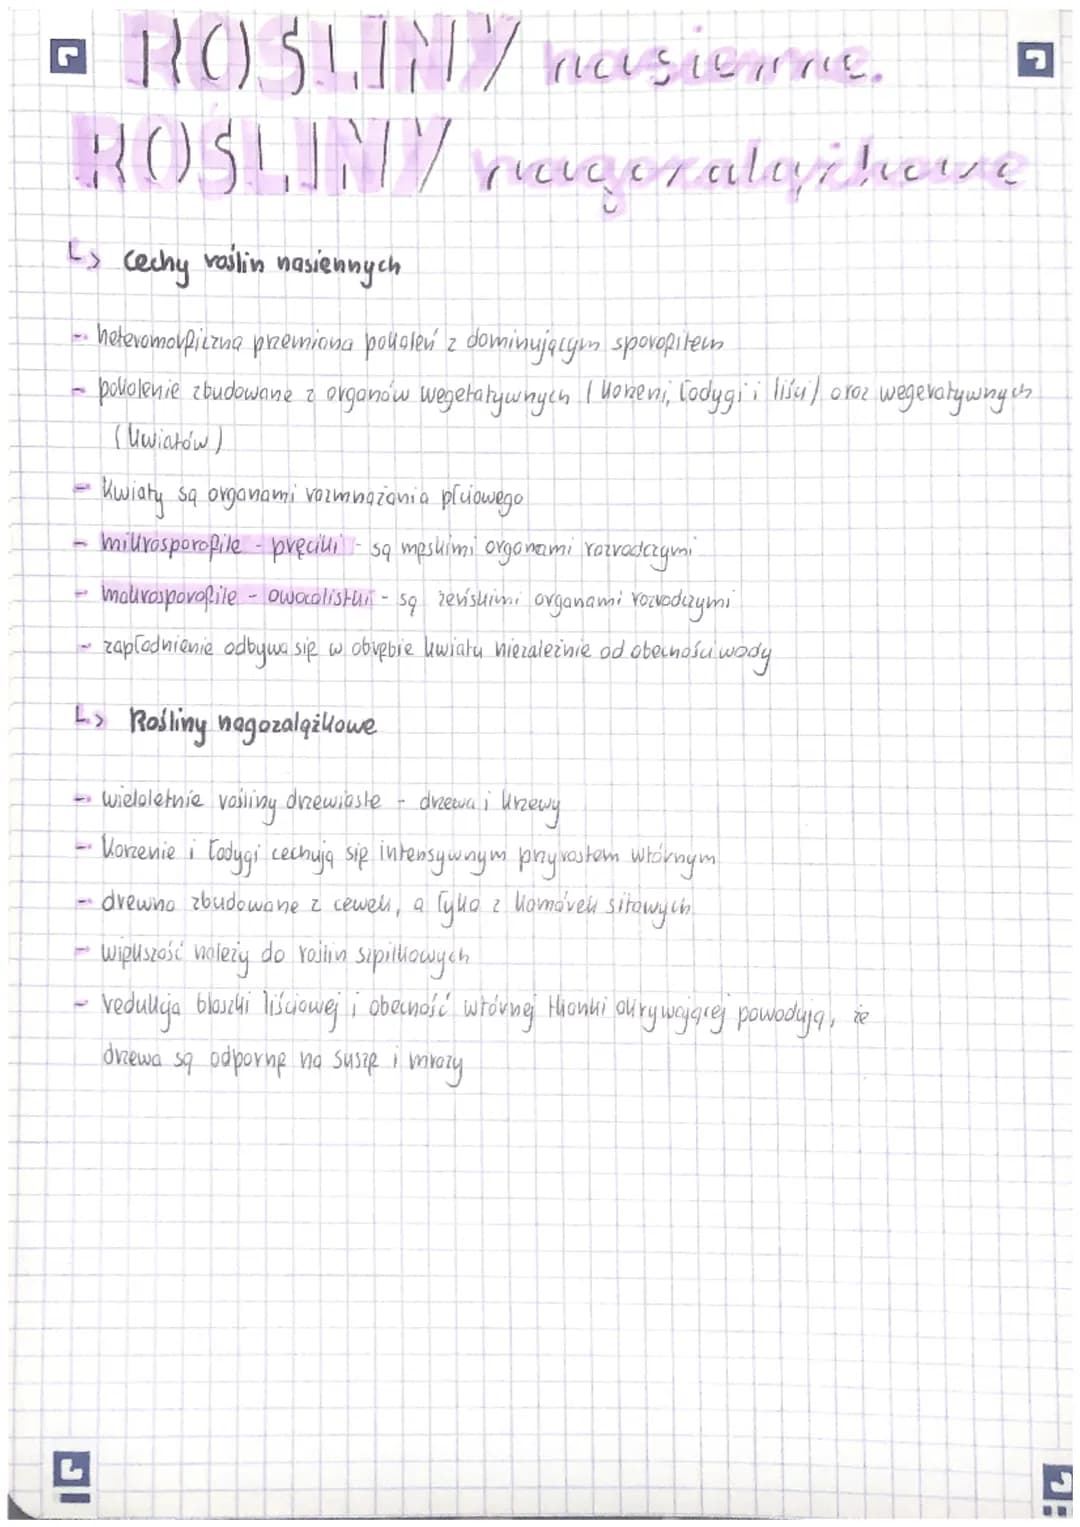 ROŚLINY nasienne.
ROŚLINY nagozalążkowe
↳ cechy roślin nasiennych
- heteromorficzna przemiana pokoleń z dominującym sporofitem
- pokolenie zbudowane z organów wegetatywnych (korzeni, łodygi i liści) oraz wegeratywnych
(kwiatów)
- kwiaty są organami rozmnażania płciowego
- mikrosporofile - pręciki - są męskimi organami rozrodczymi
- makrosporofile - owocolistki - są żeńskimi organami rozrodczymi
- zapłodnienie odbywa się w obrębie kwiatu niezależnie od obecności wody
↳ Rośliny nagozalążkowe
- wieloletnie rośliny drzewiaste - drzewa i krzewy
- korzenie i łodygi cechują się intensywnym przyrostem wtórnym
- drewno zbudowane z cewek, a łyko z komórek sitowych
- większość należy do roślin szpilkowych
- redukcja blaszki liściowej i obecność wtórnej tkanki okrywającej powodują, że
drzewa są odporne na suszę i mrozy